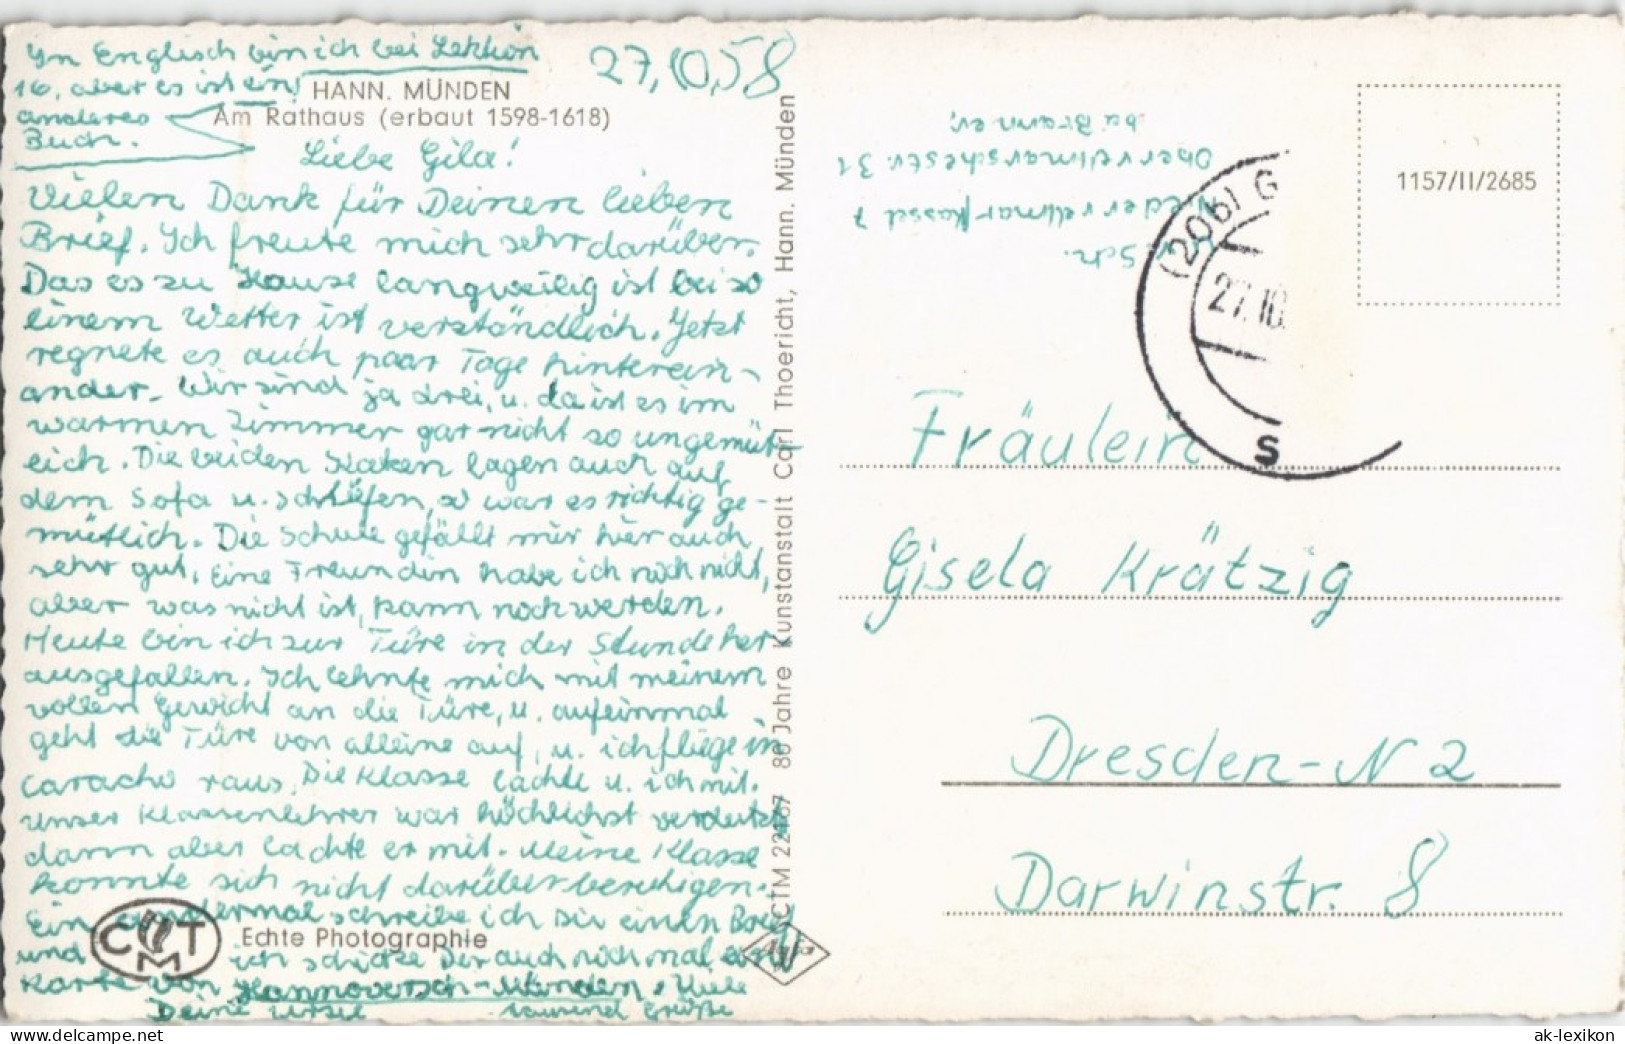 In Englisch bin ich bei Lektion
16, aber es ist ein
anderes
Buch.
27,10,58
HANN. MÜNDEN
Am Rathaus (erbaut 1598-1618)
Liebe Gila!
Vielen Dank für Deinen lieben
Brief. Ich freute mich sehr darüber.
Das es zu Hause langweilig ist bei so
einem Wetter ist verständlich. Jetzt
regnete es auch paar Tage hinterein-
ander. Wir sind ja drei, u. da ist es im
warmen Zimmer gar nicht so ungemüt-
lich. Die beiden Katzen lagen auch auf
dem Sofa u. schliefen, so war es richtig ge-
mütlich. Die Schule gefällt mir hier auch
sehr gut, eine Freundin habe ich noch nicht,
aber was nicht ist, kann noch werden.
Heute bin ich zur Türe in der Stunde her
ausgefallen. Ich lehnte mich mit meinem
vollen Gewicht an die Türe, u. aufeinmal
geht die Türe von alleine auf, u. ich fliege in
caracho raus. Die Klasse lachte u. ich mit.
unser Klassenlehrer war höchlichst verdutzt
dann aber lachte er mit. Meine Klasse
konnte sich nicht darüber beruhigen.
Ein andermal schreibe ich Dir einen Brief
und ich schicke Dir auch noch mal eine
Karte von Hannoversch-Münden. Viele
Deine Ursel tausend Grüße
CMT
Echte Photographie
CTM 22467 80 Jahre Kunstanstalt Carl Thoericht, Hann. Münden
Agfa
Sch.
Niedervellmar/Kassel 7
Obervellmarschestr. 31
bei
1157/II/2685
(20b) G
27.10.
s
Fräulein
Gisela Krätzig
Dresden-N 2
Darwinstr. 8
ak-lexikon